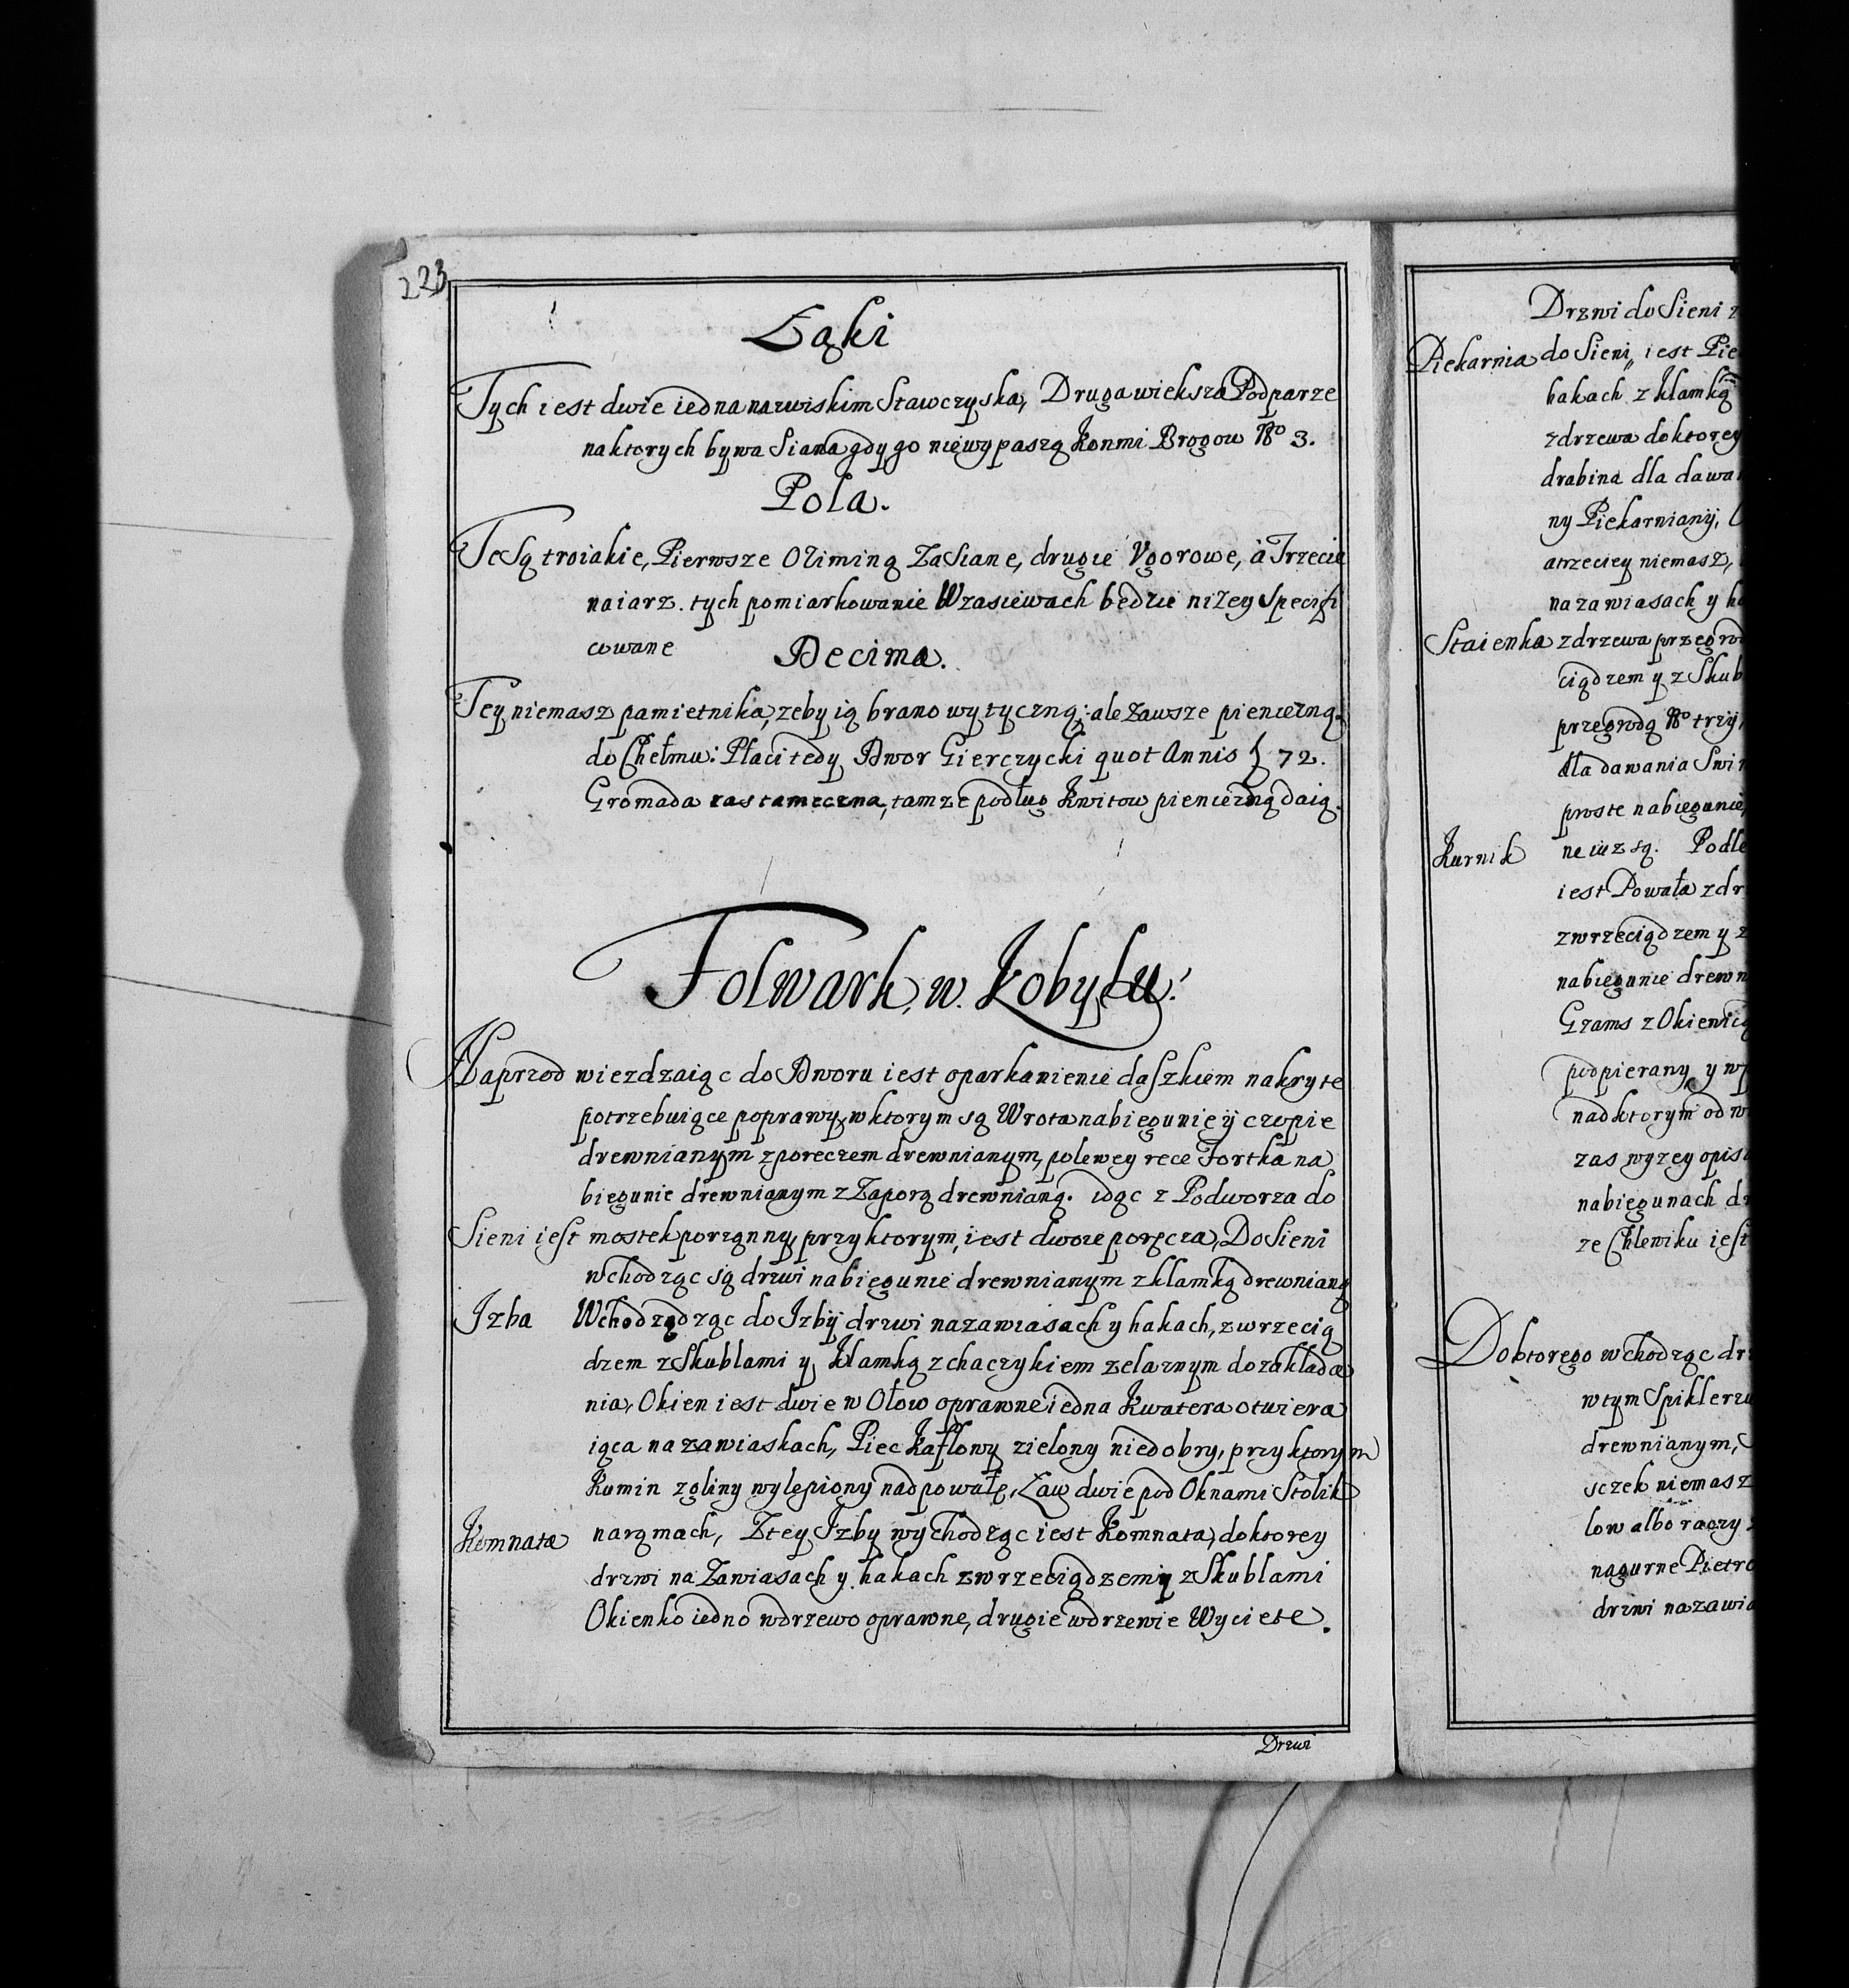 223
Łąki
Tych iest dwie iedna nazwiskim Stawczyska, Druga wieksza Podparze
naktorych bywa Siana gdy go niewypaszą Konmi Brogow No 3.
Pola.
Te Są troiakie, Pierwsze Oziminą ZaSiane, drugie Vgorowe, à Trzecie
naiarz. tych pomiarkowanie Wzasiewach będzie niżey Specifi
cowane
Decima.
Tey niemasz pamietnika, zeby ią brano wytyczną: ale zawsze pieniężną.
do Chełmu: Płaci tedy Dwor Gierczycki quot Annis f 72.
Gromada zas tameczna, tamze podług Kwitow pieniezną daią.
Folwark, w. Kobylu.
Naprzod wiezdzaiąc do Dworu iest oparkanienie daszkiem nakryte
potrzebuiące poprawy, wktorym są Wrota nabiegunie ÿ czopie
drewnianym zporeczem drewnianym, polewey rece Fortka na
biegunie drewnianym z Zaporą drewnianą. idąc z Podworza do
Sieni iest mostek porządny, przyktorym, iest dwoie poręcza, Do Sieni
wchodząc są drzwi nabiegunie drewnianym zklamką drewnianą
Izba Wchodządząc do Izbÿ drzwi nazawiasach y hakach, zwrzecią
dzem z Skublami y Klamką zchaczykiem zelaznym do zaklada
nia, Okien iest dwie w Ołow oprawne iedna Kwatera otwiera
iąca nazawiaskach, Piec Kaflowy zielony niedobry, przyktorym
Kumin zgliny wylepiony nadpowałę, Ław dwie pod Oknami Stolik
Komnata narąmach, Ztey Izby wychodząc iest Komnata, doktorey
drzwi na Zawiasach y hakach zwrzeciądzem y zSkublami
Okienko iedno wdrzewo oprawne, drugie wdrzewie Wyciete.
Drzwi
Drzwi do Sieni
Piekarnia do Sieni, iest
hakach z klamką
zdrzewa doktorey
drabina dla
ny Piekarnianÿ,
atrzeciey niemasz,
nazawiasach y
Staienka zdrzewa
ciądzem ÿ z
przegrodą No trzÿ,
dla dawania
proste nabiegunie,
Kurnik ne iuz są.
iest Powała
zwrzeciądzem y
nabiegunie
Grams z
podpierany y
nadktorym
zas wyzey
nabiegunach
ze Chlewiku iest
Doktorego wchodząc
wtym
drewnianym,
sczek niemasz
low albo raczy
nagurne
drzwi